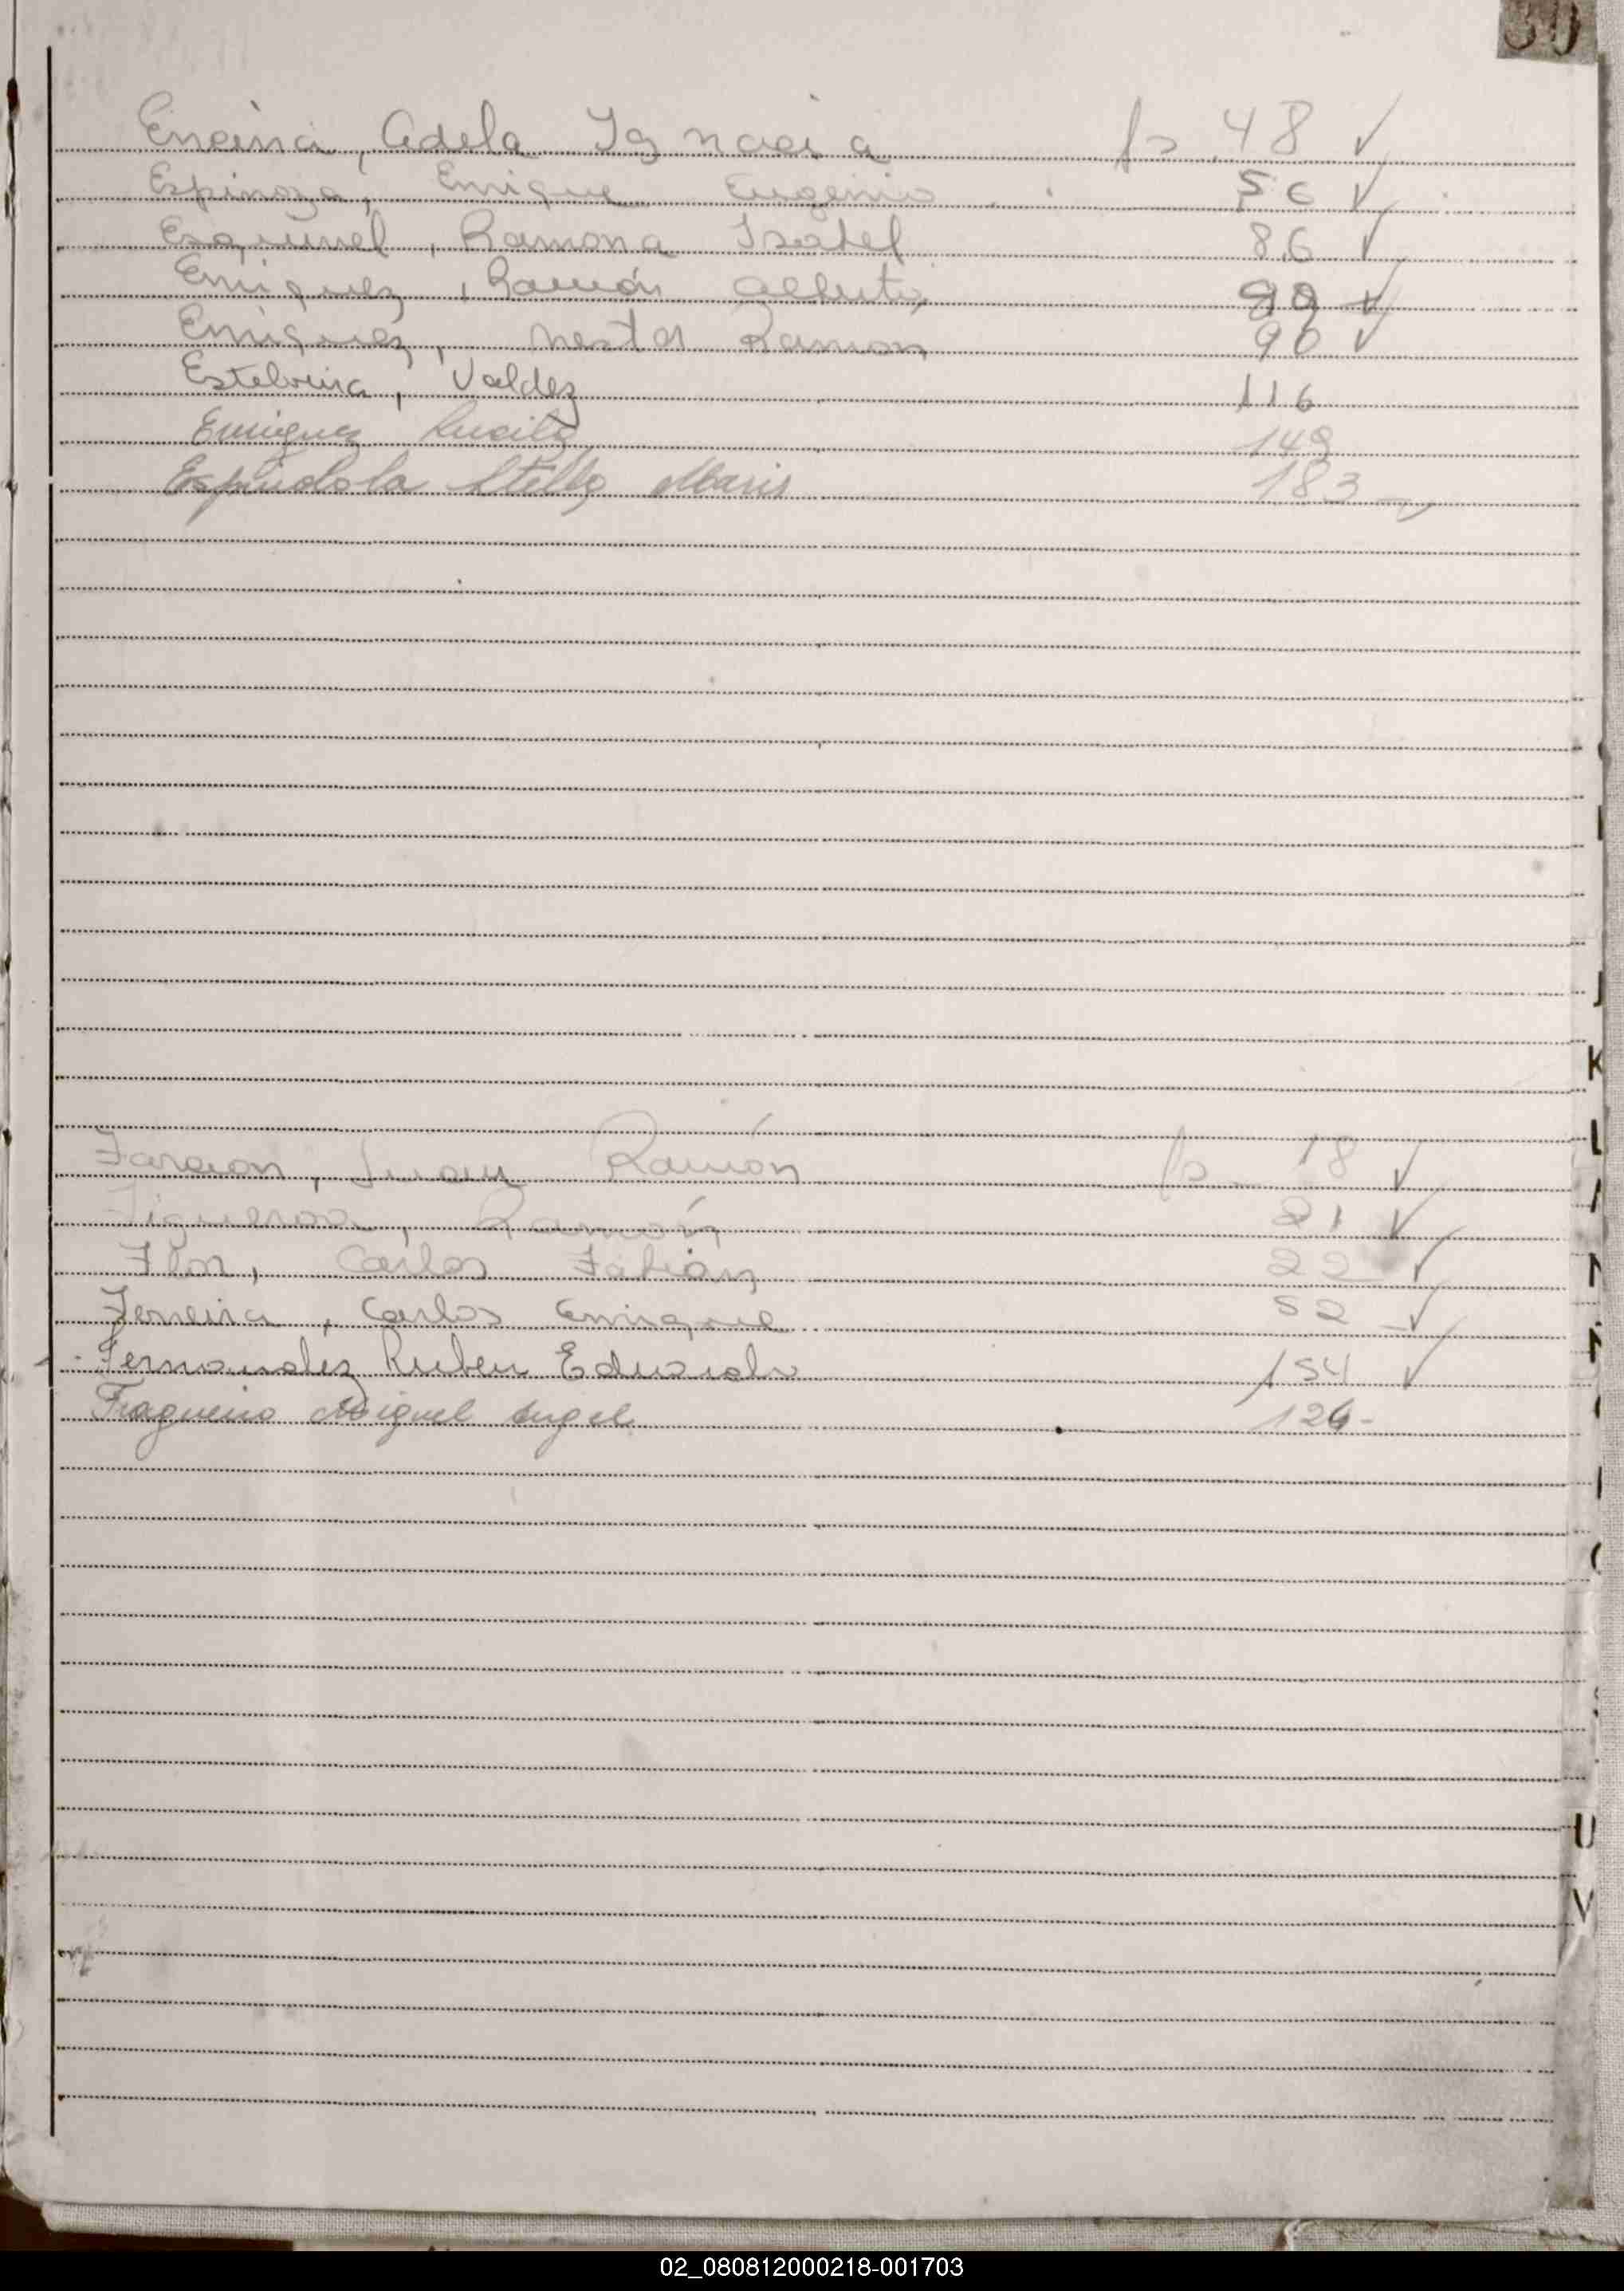 30
Encina, Adela Ignacia fs 48 ✓
Espinoza, Enrique Eugenio 56 ✓
Esquivel, Ramona Isabel 86 ✓
Enriquez, Ramón Alberto ✓
Enriquez, Nestor Ramon 90 ✓
Estelvina, Valdez 116
Enriquez Lucila 149
Espindola Stella Maris 183 -
K
L
Juan Ramón fs - 18 ✓
Figueroa, Ramón 21 ✓
Flor, Carlos Fabián 22 ✓
Ferreira, Carlos Enrique 52 - ✓
Fernandez Ruben Eduardo 154 ✓
Fragueiro Miguel Angel 126 -
U
V
02_080812000218-001703